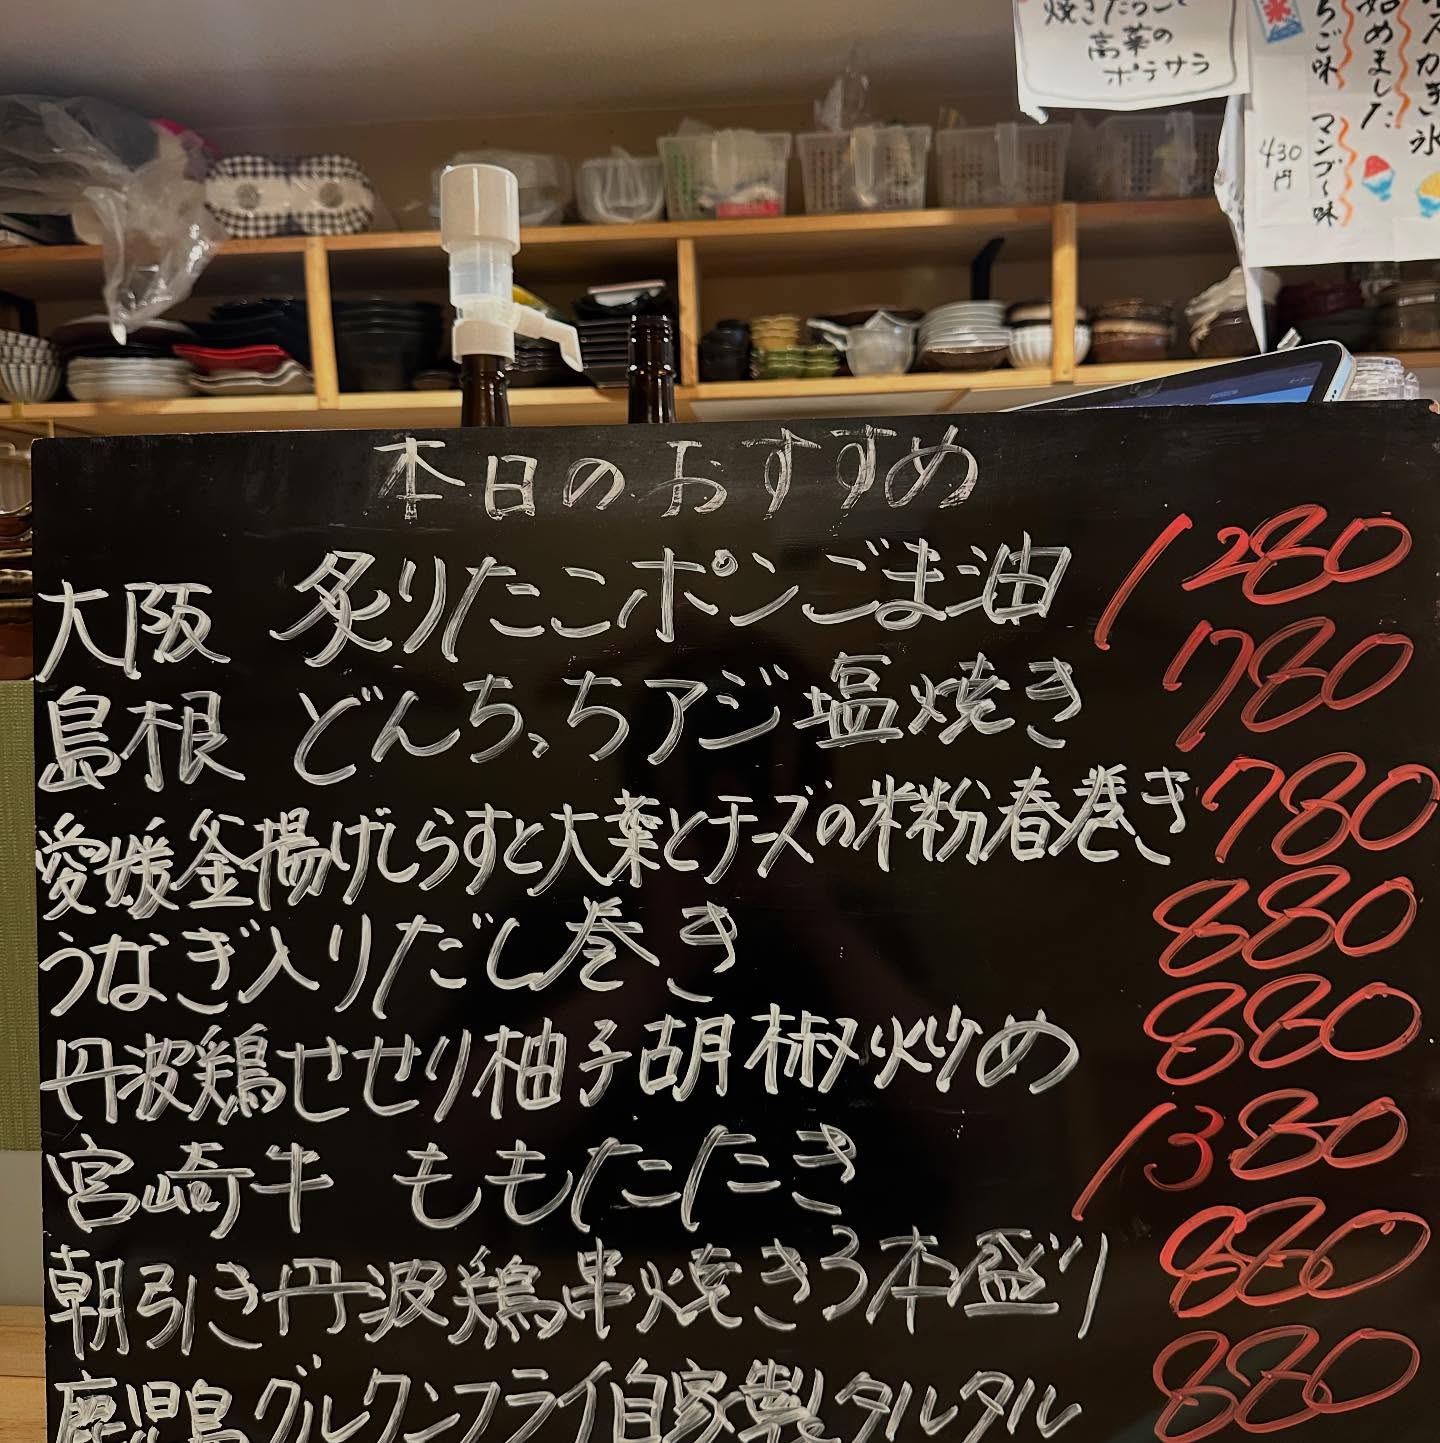 高菜の
ポテサラ
かき氷
始めました
いちご味
マンゴー味
430
円
本日のおすすめ
大阪 炙りたこポンごま油 1280
島根 どんちっちアジ塩焼き 780
愛媛釜揚げしらすと大葉とチーズの米粉春巻き 780
うなぎ入りだし巻き 880
丹波鶏せせり柚子胡椒炒め 880
宮崎牛 ももたたき 1380
朝引き丹波鶏串焼き3本盛り 880
鹿児島グルクンフライ自家製タルタル 880